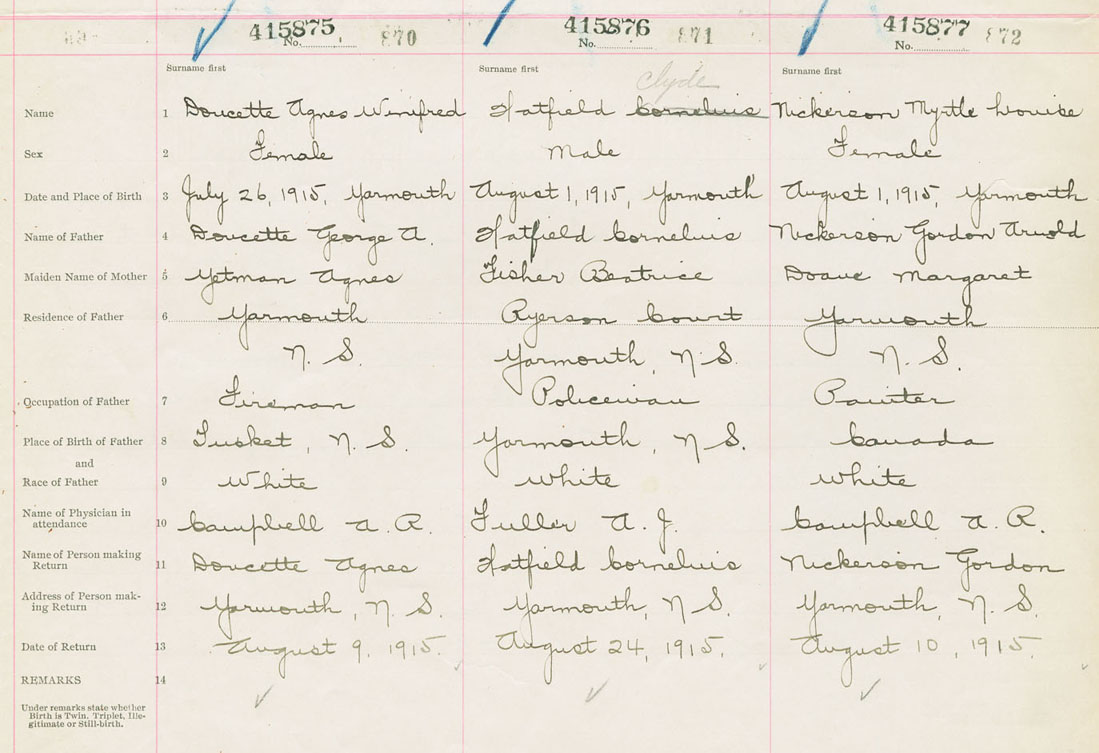 415875 415876 415877
No. 870 No. 871 No. 872
Surname first Surname first Surname first
Clyde
Name 1 Doucette Agnes Winifred Hatfield Cornelius Nickerson Myrtle Louise
Sex 2 Female Male Female
Date and Place of Birth 3 July 26, 1915, Yarmouth August 1, 1915, Yarmouth August 1, 1915, Yarmouth
Name of Father 4 Doucette George A. Hatfield Cornelius Nickerson Gordon Arnold
Maiden Name of Mother 5 Yetman Agnes Fisher Beatrice Doane Margaret
Residence of Father 6 Yarmouth Ryerson Court Yarmouth
N. S. Yarmouth, N. S. N. S.
Occupation of Father 7 Fireman Policeman Painter
Place of Birth of Father 8 Tusket, N. S. Yarmouth, N. S. Canada
and
Race of Father 9 White White White
Name of Physician in
attendance 10 Campbell A. R. Fuller A. J. Campbell A. R.
Name of Person making
Return 11 Doucette Agnes Hatfield Cornelius Nickerson Gordon
Address of Person mak-
ing Return 12 Yarmouth, N. S. Yarmouth, N. S. Yarmouth, N. S.
Date of Return 13 August 9, 1915. August 24, 1915. August 10, 1915.
REMARKS 14
Under remarks state whether
Birth is Twin, Triplet, Ille-
gitimate or Still-birth.